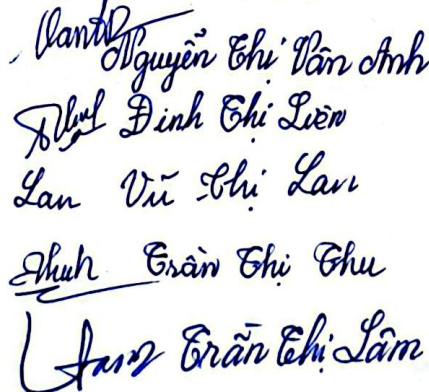 Nguyễn Thị Vân Anh
Đinh Thị Liên
Lan Vũ Thị Lan
Trần Thị Thu
Trần Thị Lâm